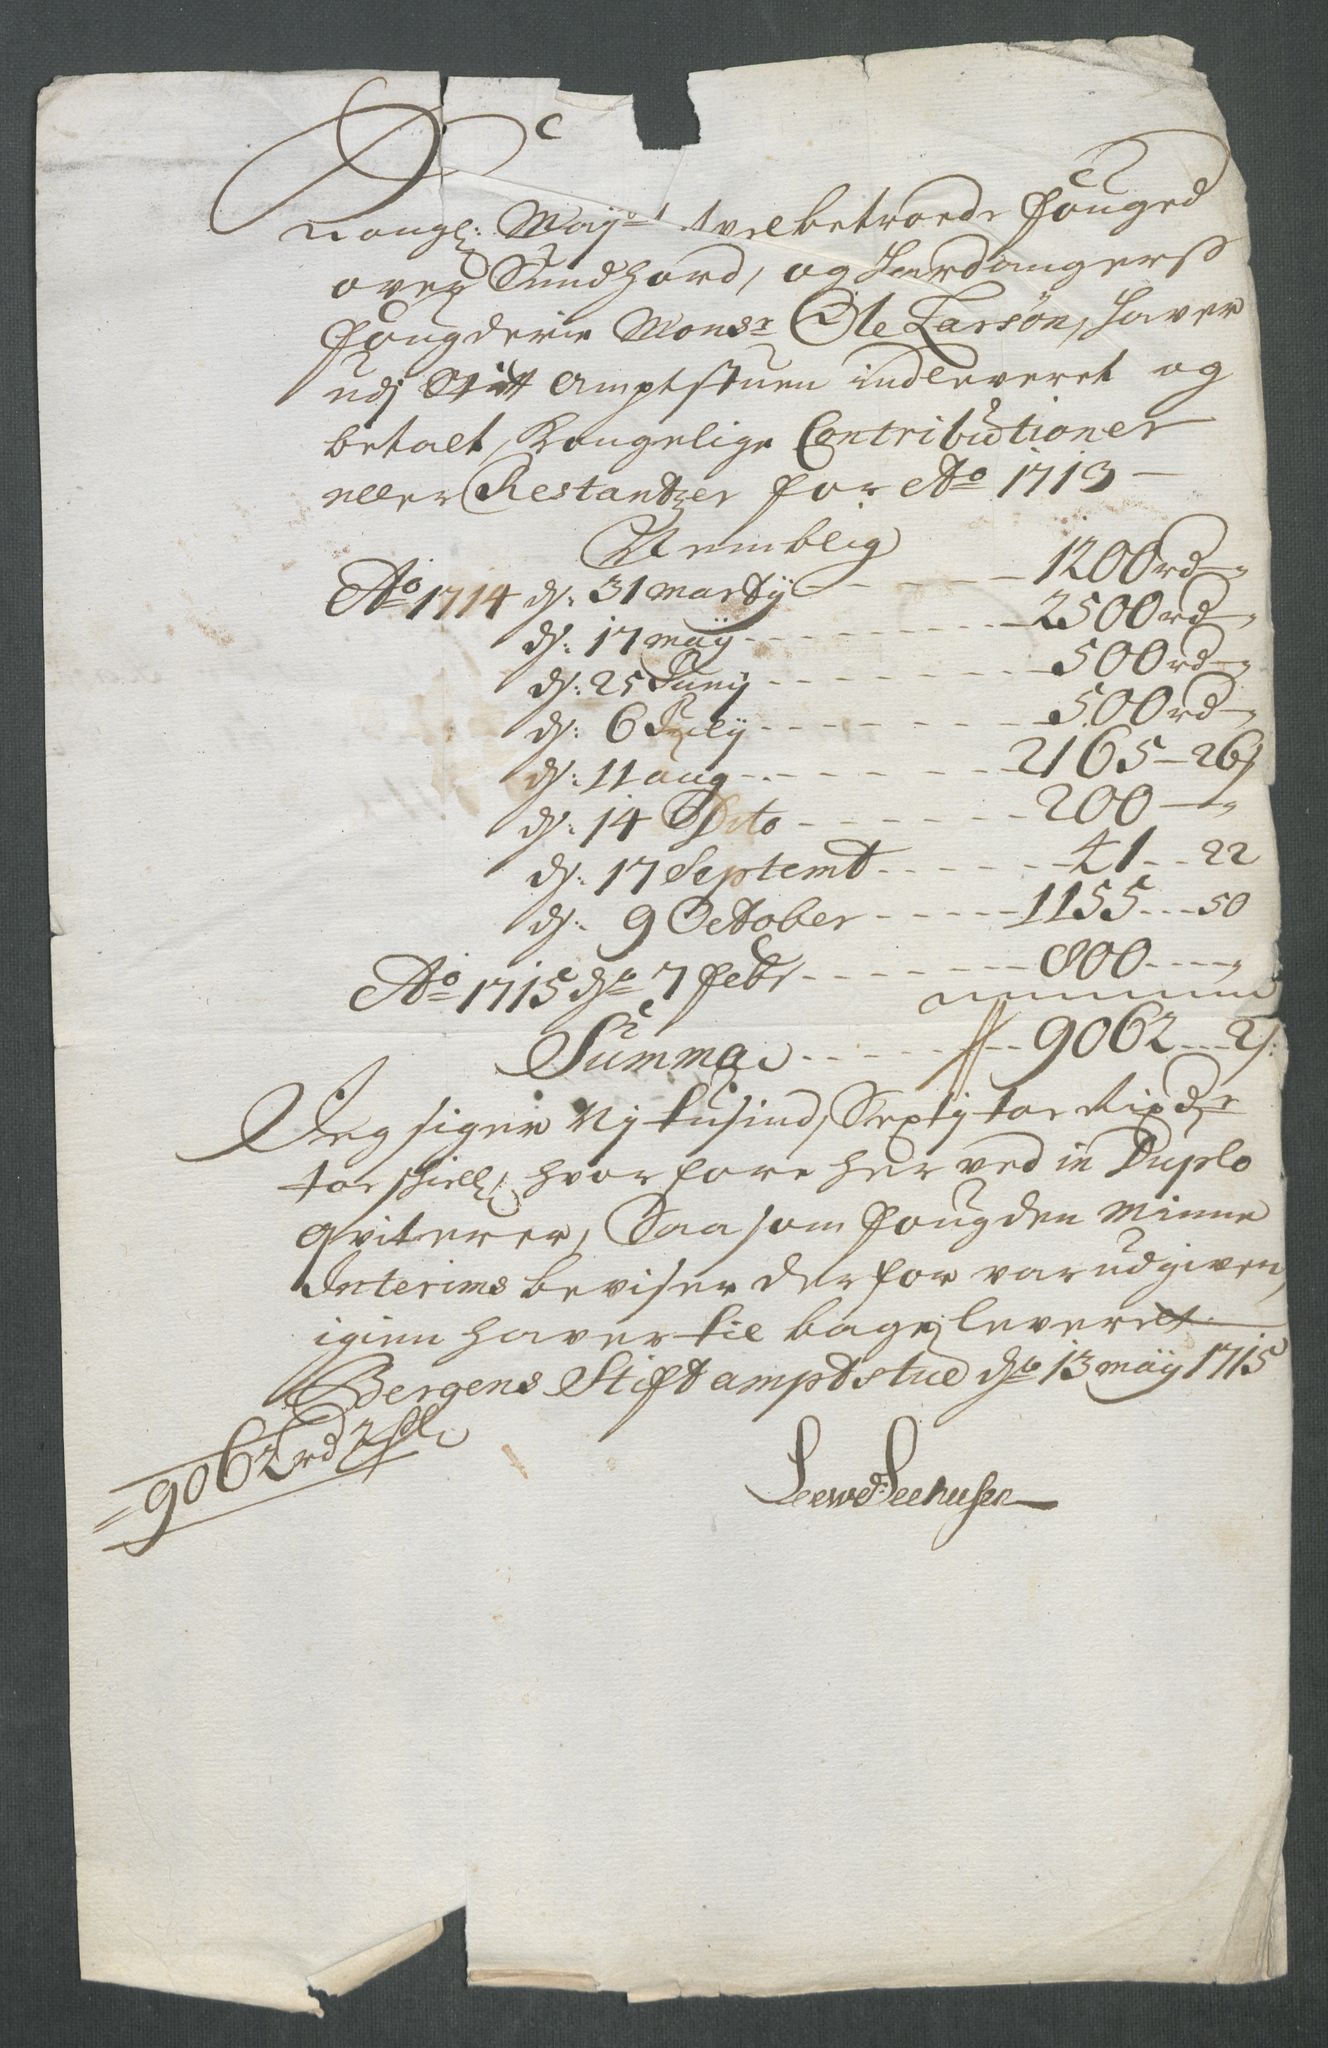 C
Kongl: Maÿts velbetroede fouged
over Sundhord, og Hardangerss
fougderie Monsr Ole Larsøn, haver
udj Stift Amptstuen indleveret og
betalt, Kongelige Contributioner
eller Restantzer for Ao 1713 —
Nemblig
Ao 1714 ds: 31 martÿ - - - 1200 rd — „
ds: 17 maÿ - - - 2500 rd — „
ds: 25 Junÿ - - - 500 rd — „
ds: 6 Julÿ - - - 500 rd — „
ds: 11 aug - - - 2165 — 26 s
ds: 14 Dito - - - 200 — „
ds: 17 Septemb - - - 41 - - 22
ds: 9 October - - - 1155 - - 50
Ao 1715 ds 7 febr - - - 800 - - - „
Summa - - - 9062 - - 2 s:
Jeg siger Nj tusind, Sextj toe Rixdr
toe skiell, hvor fore her ved in Duplo
qviterer, Saa som fougden Minne
Interims beviser der for var udgiven,
igien haver til bage leveret
Bergens Stift amptstue ds 13 maÿ 1715
9062 rd 2 sl
Seewd: Seehusen